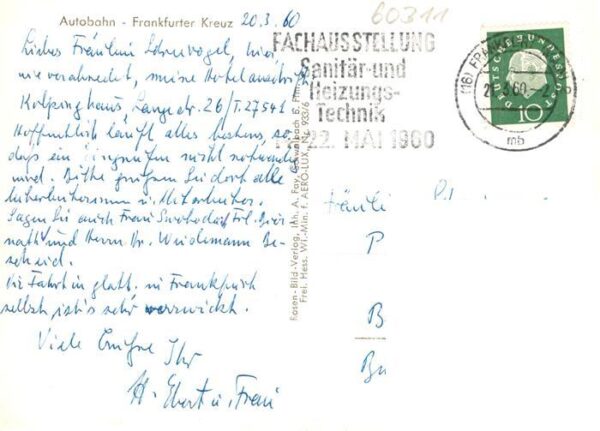 Autobahn - Frankfurter Kreuz 20.3.60
60311
Liebes Fräulein hier,
wie verabredet, meine Hotelanschrift
Kolpinghaus, Lange str. 26 / T. 27541
Hoffentlich läuft alles bestens, so
daß ein nicht notwendig
wird. Bitte grüßen Sie dort alle
Mitarbeiterinnen u. Mitarbeiter.
Sagen Sie auch Frau Frl.
und Herrn Dr. Weidemann Be-
scheid.
Die Fahrt ging glatt. in Frankfurt
selbst ist's sehr verzwickt.
Viele Grüße Ihr
H. Ebert u. Frau
Rosen-Bild-Verlag, Inh. A. Fay,
Frei. Hess. Wi.-Min. f. AERO-LUX 933/6
FACHAUSSTELLUNG
Sanitär-und
Heizungs-
Technik
22. MAI 1960
(16) FRANKFURT
3.60
mb
DEUTSCHE BUNDESPOST
10
Fräulei
P
B
Bu